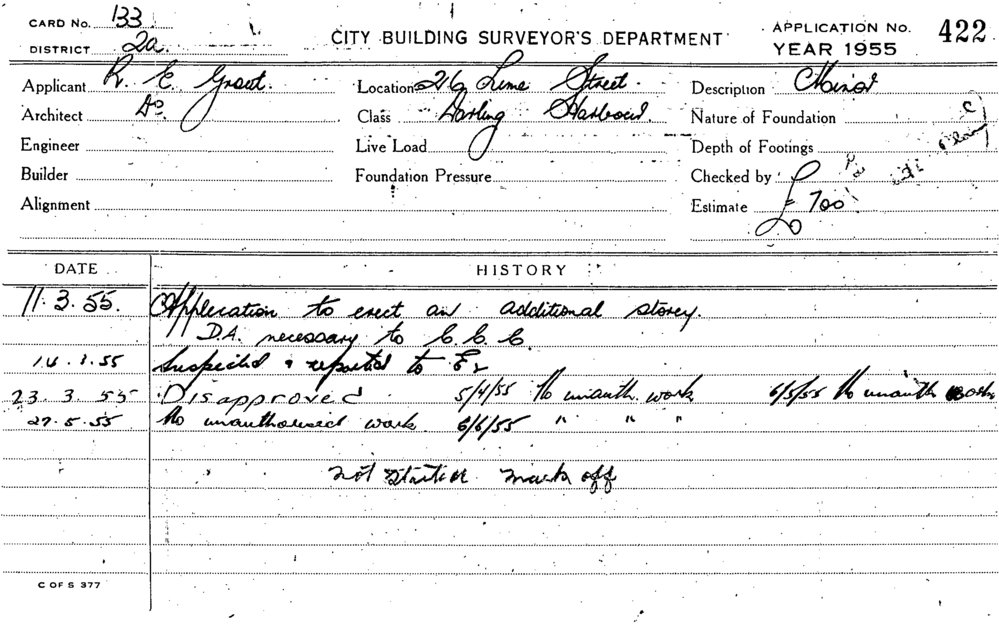 CARD No. 133
DISTRICT 2a
CITY BUILDING SURVEYOR'S DEPARTMENT
APPLICATION No. 422
YEAR 1955
Applicant R. E. Grant.
Location 26 Lime Street.
Description Minor
Architect Do.
Class Darling Harbour.
Nature of Foundation
Engineer
Live Load
Depth of Footings
Builder
Foundation Pressure
Checked by
Alignment
Estimate £700
DATE HISTORY
11.3.55. Application to erect an additional storey.
D.A. necessary to C.C.C.
14.3.55 Inspected & reported to
23.3.55 Disapproved 5/4/55 No unauth. work 6/5/55 No unauth
27.5.55 No unauthorised work 6/6/55 " " "
not started mark off
C OF S 377